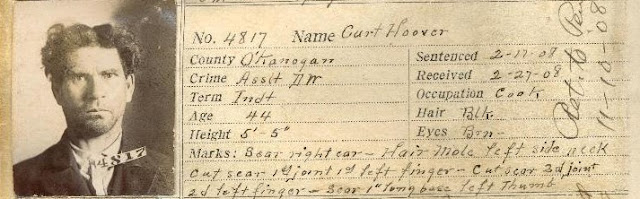 No. 4817 Name Curt Hoover
County Okanogan
Sentenced 2-17-08
Crime Asslt DW
Received 2-27-08
Term Indt
Occupation Cook
Age 44
Hair Blk
Height 5'-5"
Eyes Brn
Marks: Scar right ear - Hair Mole left side neck
Cut scar 1st joint 1st left finger - Cut scar 3d joint
2d left finger - Scar 1" long base left Thumb
4817
11-10-08